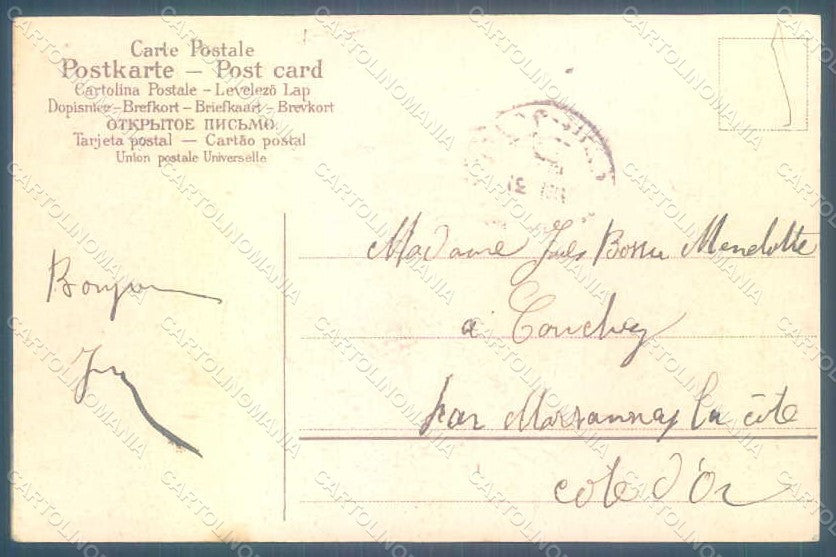 Carte Postale
Postkarte — Post card
Cartolina Postale – Levelező Lap
Dopisnice – Brefkort – Briefkaart – Brevkort
ОТКРЫТОЕ ПИСЬМО.
Tarjeta postal — Cartão postal
Union postale Universelle
Bonjour
Madame Jules Bossu Mendotte
a Couchey
par Marsannay la côte
cote d'Or
CARTOLINOMANIA